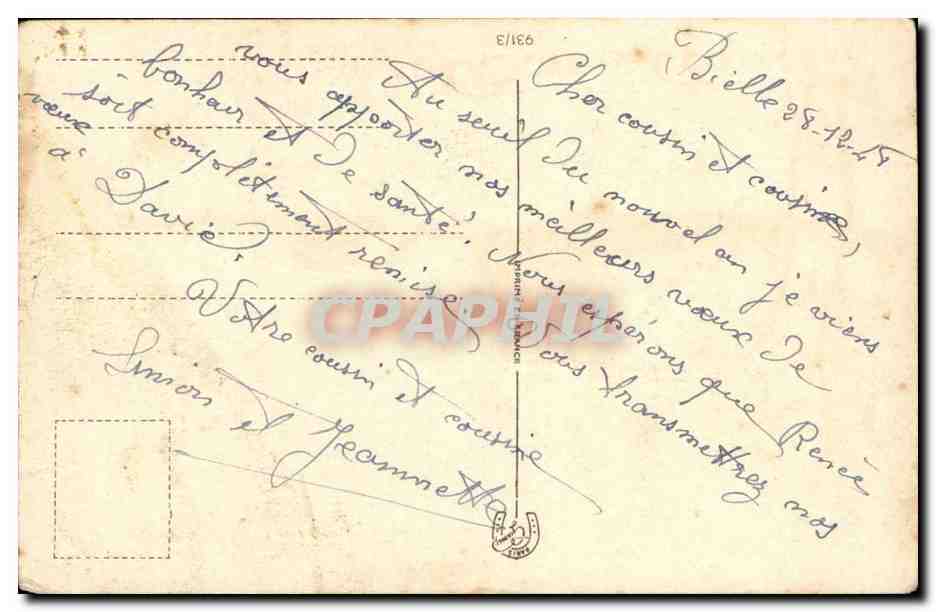 Bielle 28-12-45
Cher cousin et cousine,
Au seuil du nouvel an je viens
vous apporter nos meilleurs vœux de
bonheur et de santé. Nous espérons que Renée
soit complètement remise. Vous transmettrez nos
vœux
à David.
Votre cousin et cousine
Simon et
Jeannette
931/3
IMPRIMÉ EN FRANCE
PARIS
CPAPHIL